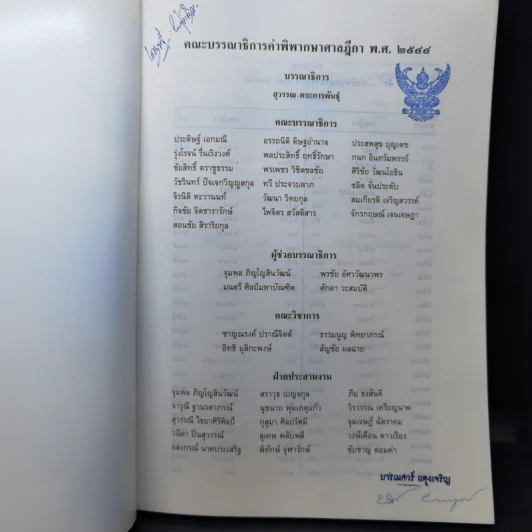 คณะบรรณาธิการคำพิพากษาศาลฎีกา พ.ศ. ๒๕๔๔
บรรณาธิการ
สุวรรณ ตระการพันธุ์
คณะบรรณาธิการ
ประดิษฐ์ เอกมณี อรรถนิติ ดิษฐอำนาจ ประสพสุข บุญเดช
รุ่งโรจน์ รื่นเริงวงศ์ พลประสิทธิ์ ฤทธิ์รักษา กนก อินทรัมพรรย์
ชัยสิทธิ์ ตราชูธรรม พรเพชร วิชิตชลชัย ศิริชัย วัฒนโยธิน
วัชรินทร์ ปัจเจกวิญญูสกุล ทวี ประจวบลาภ ชลิต จั่นประดับ
จิรนิติ หะวานนท์ วัฒนา วิทยกุล สมเกียรติ เจริญสวรรค์
กิจชัย จิตธารารักษ์ ไพจิตร สวัสดิสาร จักรกฤษณ์ เจนเจษฎา
สอนชัย สิราริยกุล
ผู้ช่วยบรรณาธิการ
จุมพล ภิญโญสินวัฒน์ พรชัย อัศววัฒนาพร
มนตรี ศิลป์มหาบัณฑิต ศักดา วะสมบัติ
คณะวิชาการ
ชาญณรงค์ ปราณีจิตต์ ธรรมนูญ พิทยาภรณ์
อิทธิ มุสิกะพงษ์ สัญชัย ผลฉาย
ฝ่ายประสานงาน
จุมพล ภิญโญสินวัฒน์ สราวุธ เบญจกุล ภีม ธงสันติ
จารุณี ฐานรตาภรณ์ นุชนาถ พุ่มเกตุแก้ว วีรวรรณ เหรียญนาค
สุวรรณี ไชยาศิริศิลป์ กุสุมา ศิลปรัศมี จุลเจษฎิ์ ฉัตราคม
วนิดา ปิ่นสุวรรณ์ สุเทพ พลับพลี วงษ์เดือน ดาวเรือง
ยลงกรณ์ นาคประเสริฐ พิทักษ์ จุฬารักษ์ ชัยชาญ คอมคำ
บารเมศวร์ ผดุงเจริญ